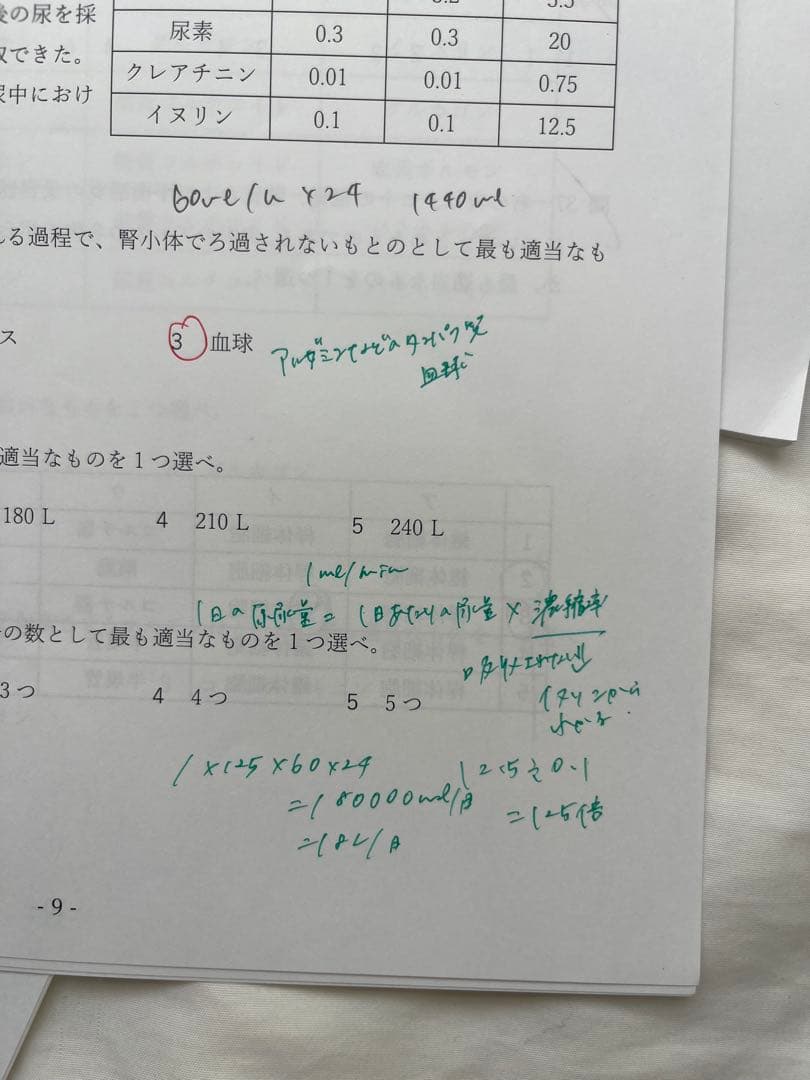 後の尿を採
取できた。
尿中におけ
尿素 0.3 0.3 20
クレアチニン 0.01 0.01 0.75
イヌリン 0.1 0.1 12.5
×24 1440ml
れる過程で、腎小体でろ過されないもとのとして最も適当なも
ス 3 血球
アルブミンなどのタンパク質
血球
適当なものを1つ選べ。
180 L 4 210 L 5 240 L
1ml/min
1日の原尿量 = 1日あたりの尿量 × 濃縮率
の数として最も適当なものを1つ選べ。
3つ 4 4つ 5 5つ
イヌリンから
わかる
1×125×60×24
12.5÷0.1
=180000ml/日
=125倍
=18L/日
- 9 -